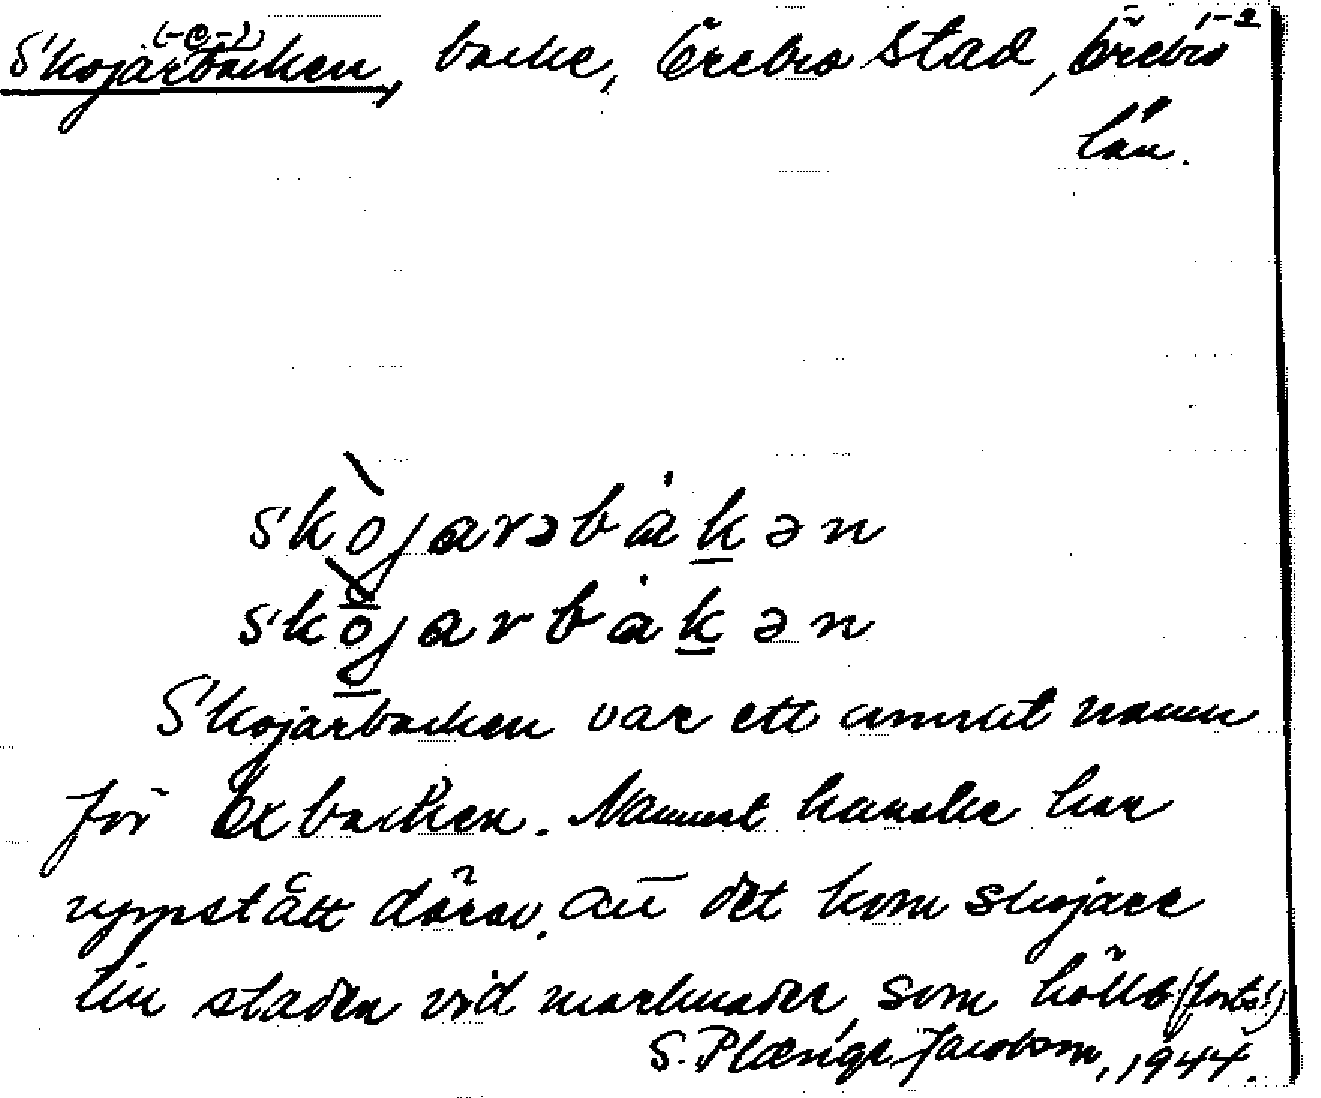 1-2
(-e-)
Skojarbacken, backe, Örebro stad, Örebro
län.
skòjarəbàkən
skòjarbàkən
Skojarbacken var ett annat namn
för Oxbacken. Namnet kanske har
uppstått därav, att det kom skojare
till staden vid marknader, som hölls (forts!)
S. Plænge Jacobson, 1944.